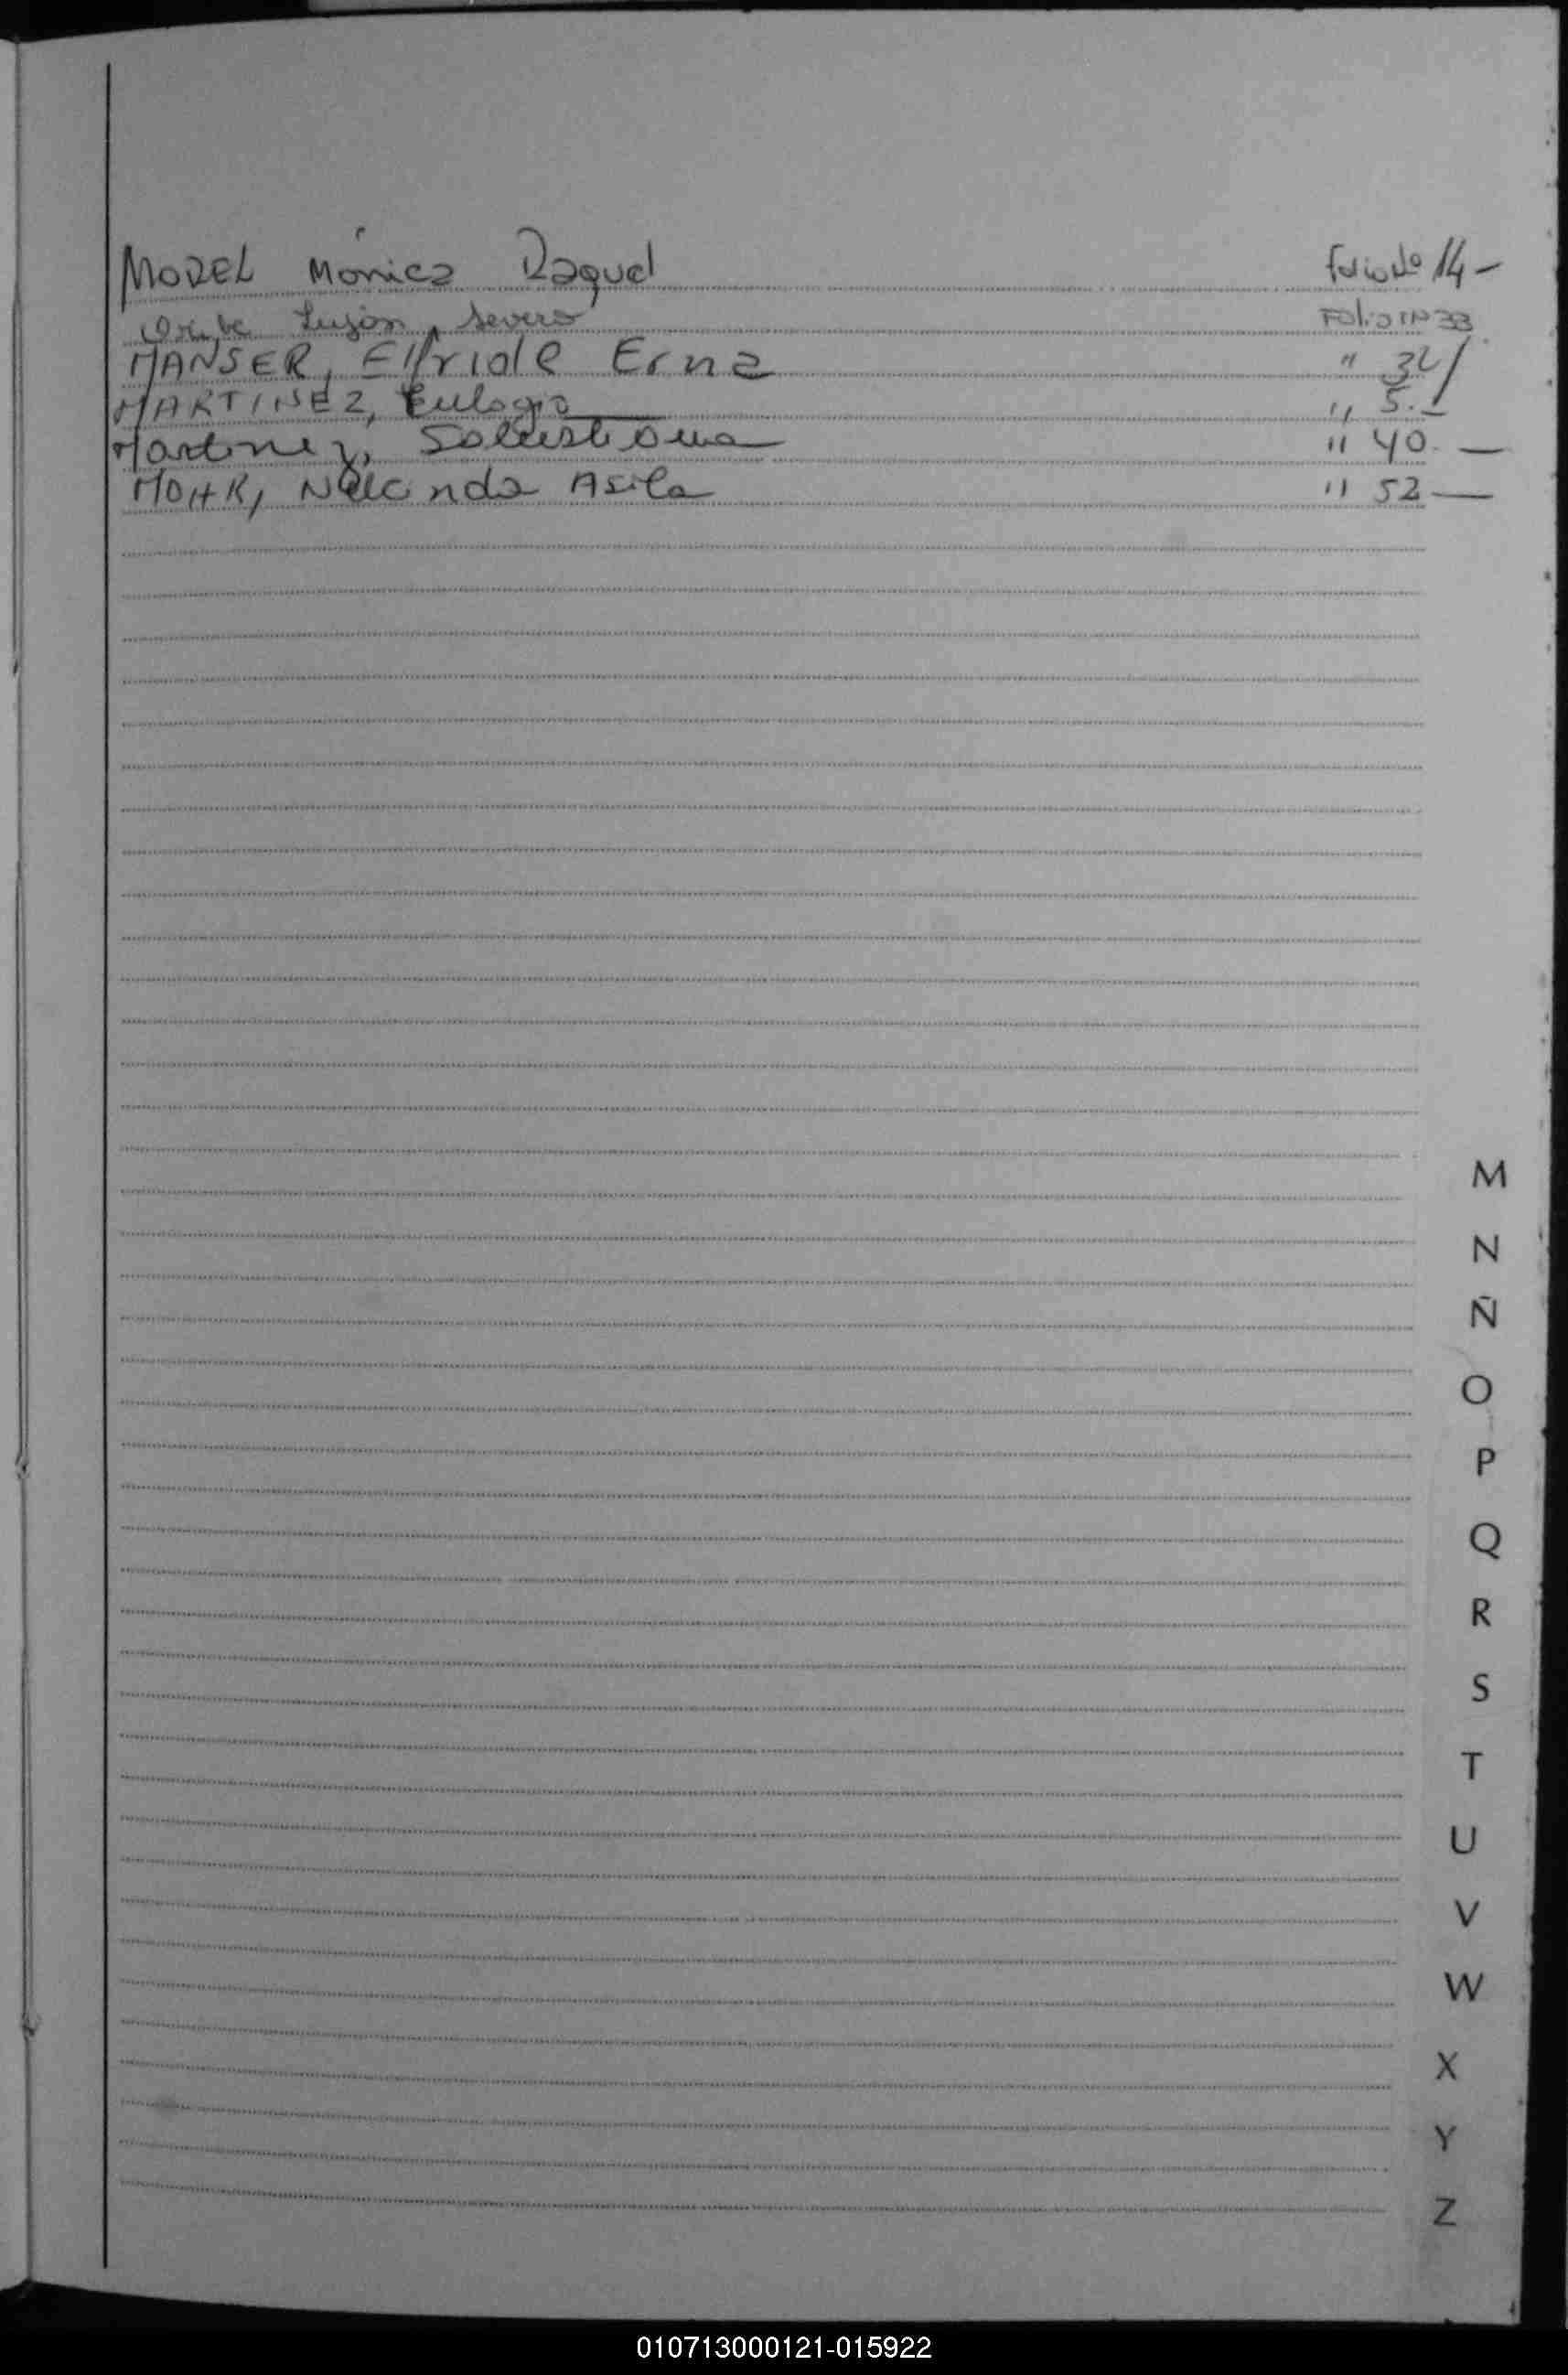 MODEL Mónica Raquel Folio Nº 14 -
Oribe Luján, Severo Folio Nº 33
MANSER, Elfride Erna " 34/
MARTINEZ, Eulogio " 5. -
Martinez, Salustiana " 40. —
MOHR, Nelcinda Asila " 52 —
M
N
Ñ
O
P
Q
R
S
T
U
V
W
X
Y
Z
010713000121-015922